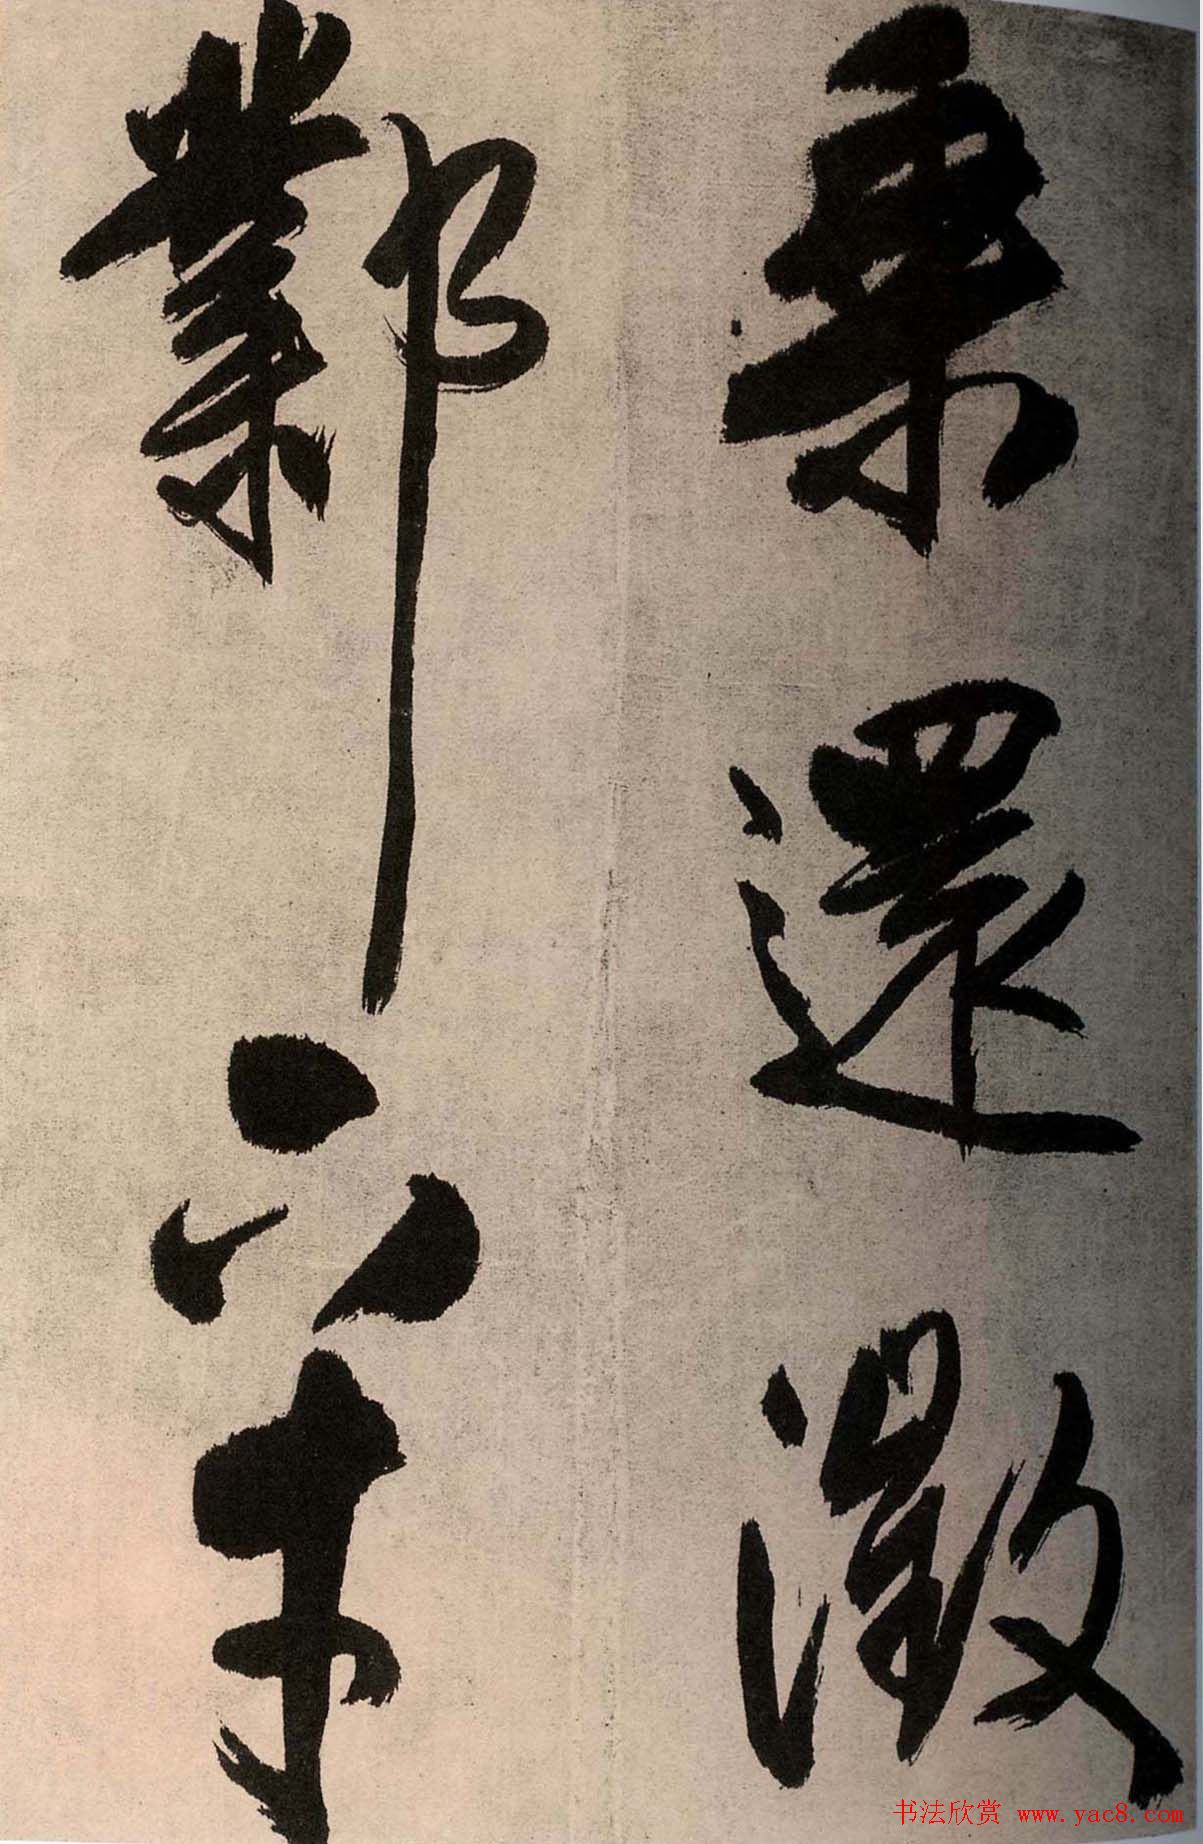 乗還
鄴六
书法欣赏 www.yac8.com